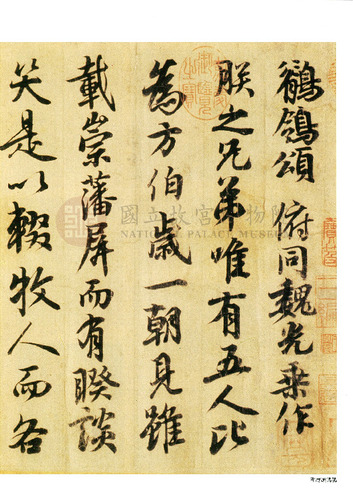 鶺鴒頌 俯同魏光乗作
朕之兄弟唯有五人比
為方伯歲一朝見雖
載崇藩屏而有睽談
笑是以輟牧人而各
國立故宮博物院
NATIONAL PALACE MUSEUM